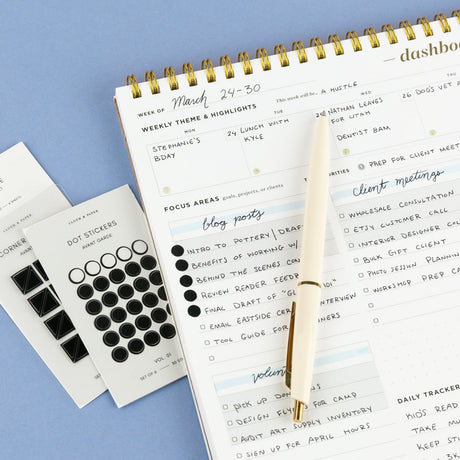 dashbo
WEEK OF March 24-30
This week will be... A HUSTLE
WEEKLY THEME & HIGHLIGHTS
MON
TUE
WED
STEPHANIE'S BDAY
24 LUNCH WITH KYLE
25 NATHAN LEAVES FOR UTAH
DENTIST 8AM
26 DOG'S VET A
PREP FOR CLIENT MEE
FOCUS AREAS goals, projects, or clients
ORITIES
blog posts
INTRO TO POTTERY / DRAF
BENEFITS OF WORKING W/
BEHIND THE SCENES CON
REVIEW READER FEEDB
FINAL DRAFT OF "GL 101"
EMAIL EASTSIDE CER INTERVIEW
TOOL GUIDE FOR NNERS
client meetings
WHOLESALE CONSULTATION
ETSY CUSTOMER CALL
INTERIOR DESIGNER COL
BULK GIFT CLIENT
PHOTO SESSION PLANNING
WORKSHOP PREP CA
volun
PICK UP DON ONS
DESIGN FLY FOR CAMP
AUDIT ART SUPPLY INVENTORY
SIGN UP FOR APRIL HOURS
DAILY TRACKER
KID'S READ
TAKE MU
KEEP STU
WALK 3K
DOT STICKERS
AVANT GARDE
VOL. 01
SET OF 6
CORNER